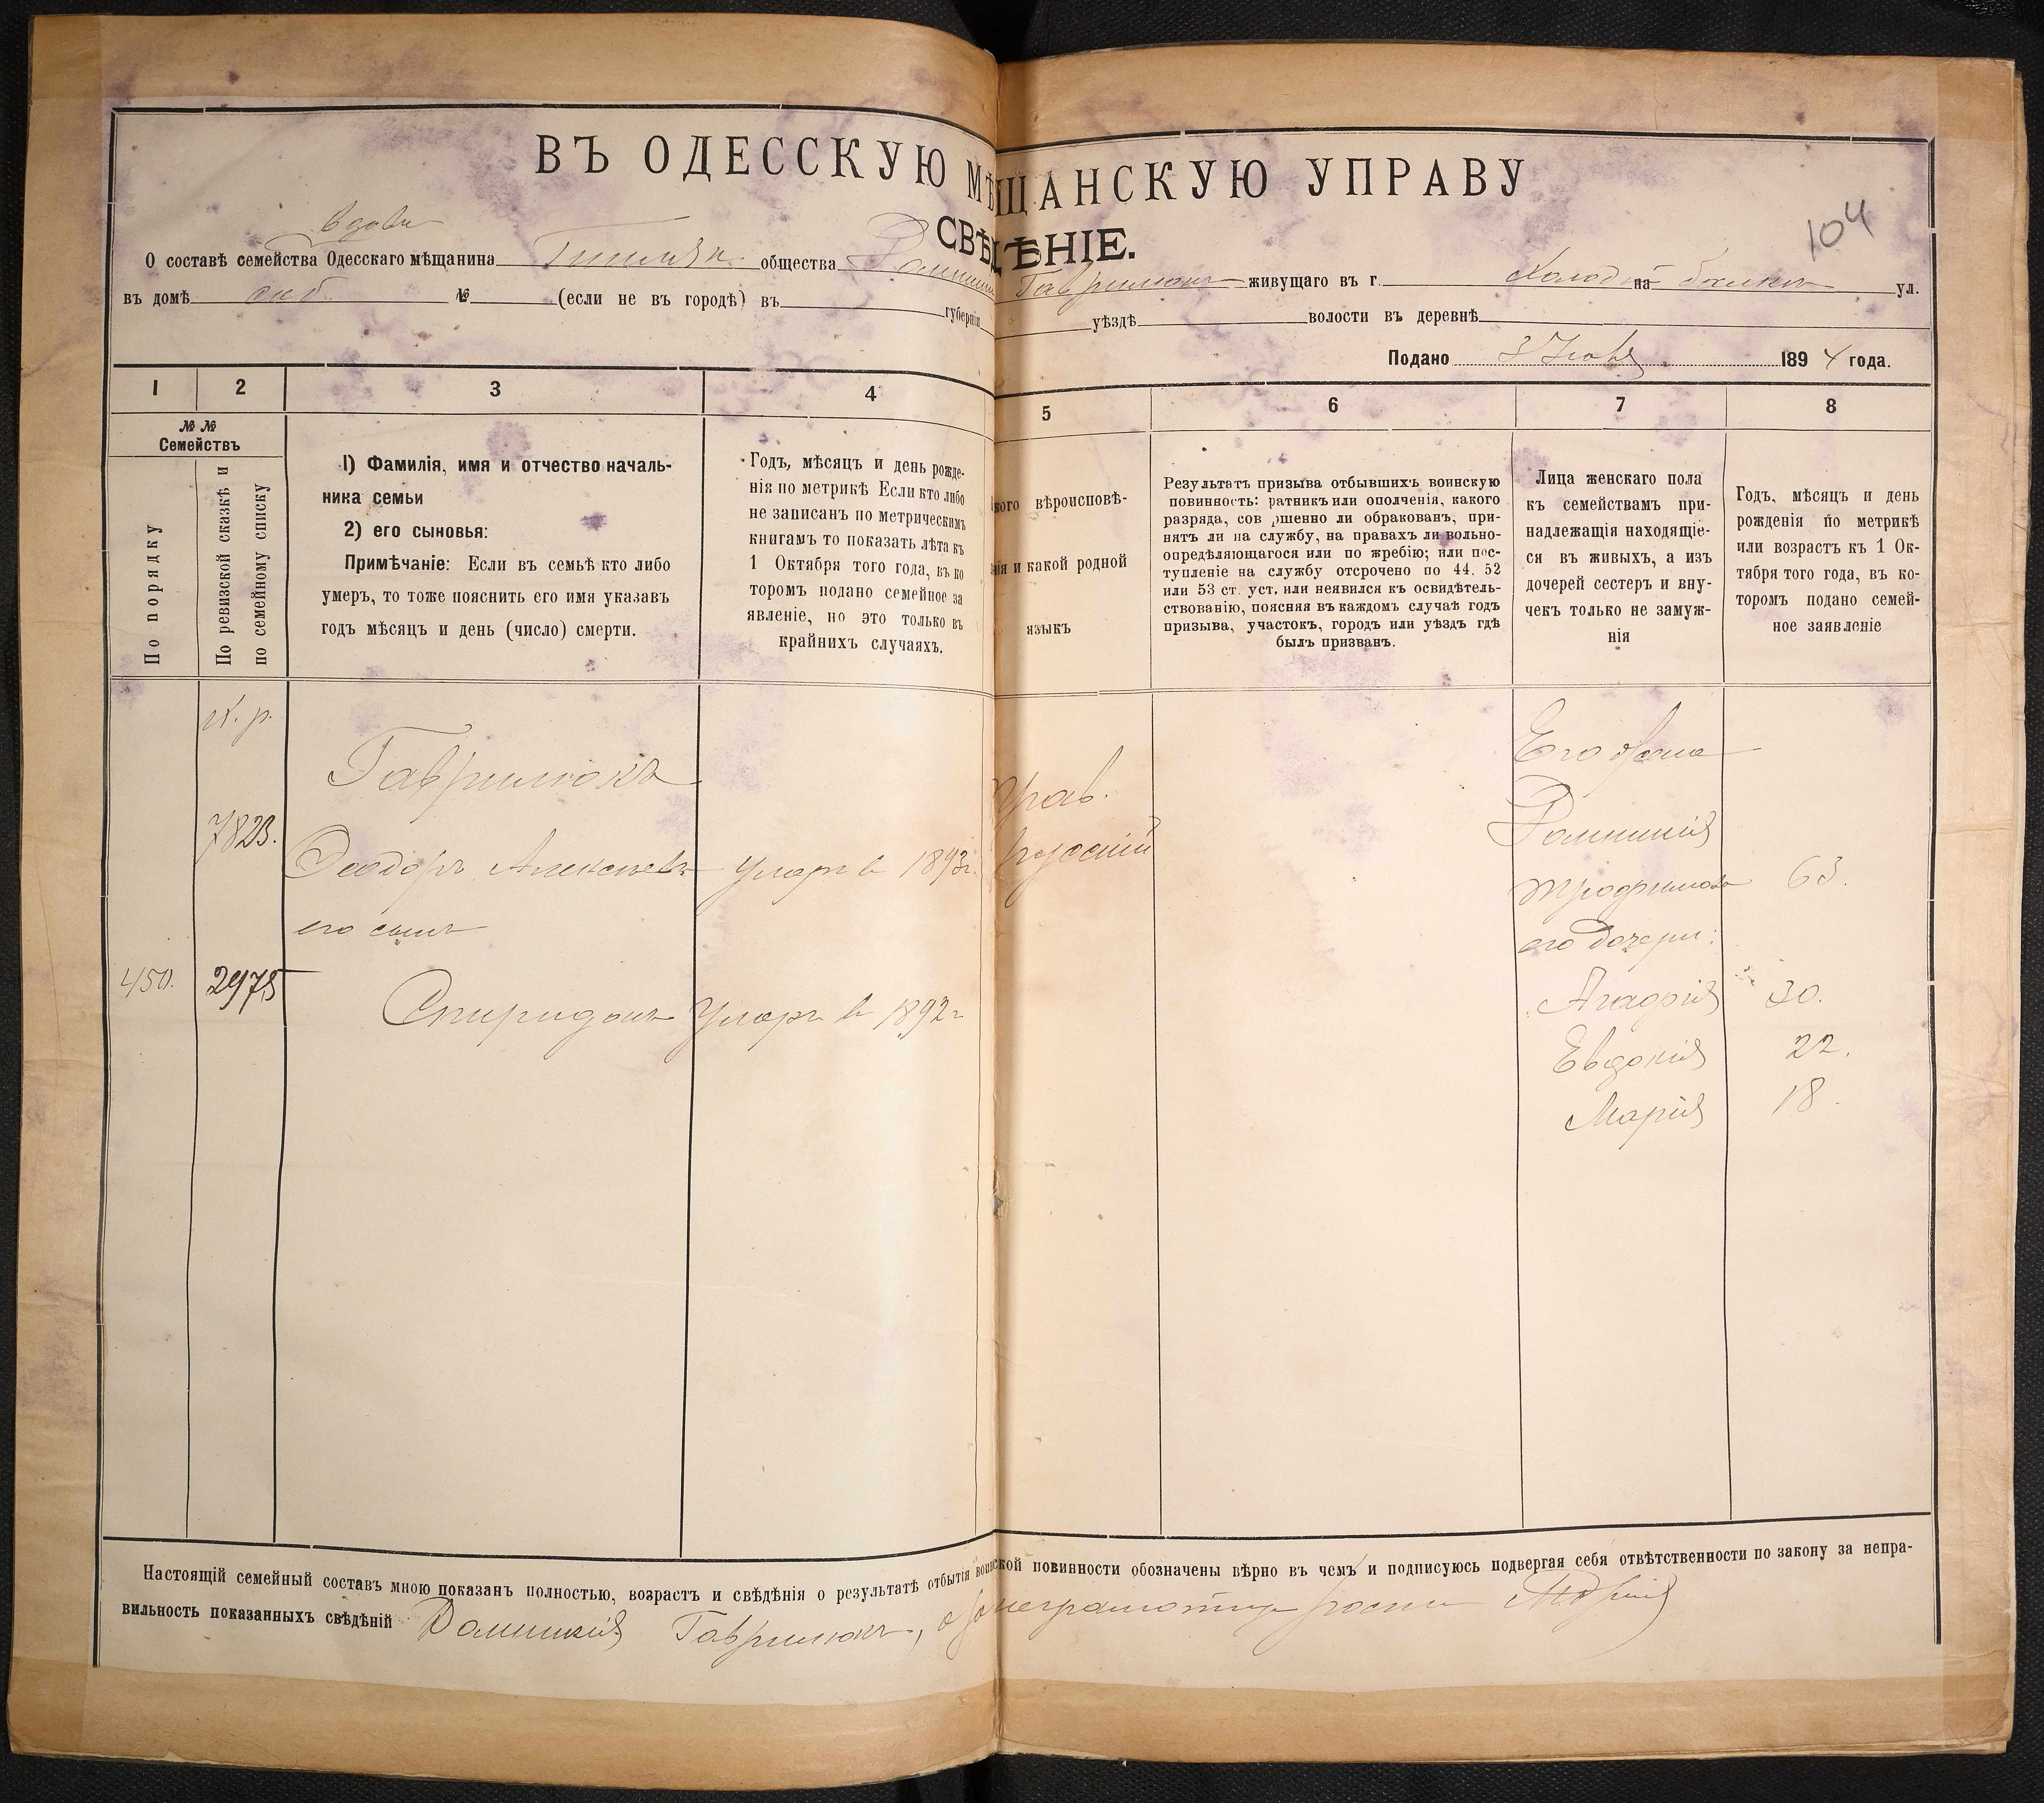 ВЪ ОДЕССКУЮ МѢЩАНСКУЮ УПРАВУ
СВѢДѢНІЕ.
104
вдовы
О составѣ семейства Одесскаго мѣщанина общества Домникіи Гаврилюкъ живущаго въ г. Холодной балкѣ на ул.
въ домѣ соб. № (если не въ городѣ) въ губерніи уѣздѣ волости въ деревнѣ
Подано 3 1894 года.
1 2 3 4 5 6 7 8
№ №
Семействъ
По порядку
По ревизской сказкѣ и
по семейному списку
1) Фамилія, имя и отчество началь-
ника семьи
2) его сыновья:
Примѣчаніе: Если въ семьѣ кто либо
умеръ, то тоже пояснить его имя указавъ
годъ мѣсяцъ и день (число) смерти.
Годъ, мѣсяцъ и день рожде-
нія по метрикѣ Если кто либо
не записанъ по метрическимъ
книгамъ то показать лѣта къ
1 Октября того года, въ ко
торомъ подано семейное за
явленіе, но это только въ
крайнихъ случаяхъ.
кого вѣроисповѣ-
нія и какой родной
языкъ
Результатъ призыва отбывшихъ воинскую
повинность: ратникъ или ополченія, какого
разряда, сов ршенно ли обракованъ, при-
нятъ ли на службу, на правахъ ли вольно-
опредѣляющагося или по жребію; или пос-
тупленіе на службу отсрочено по 44. 52
или 53 ст. уст. или неявился къ освидѣтель-
ствованію, поясняя въ каждомъ случаѣ годъ
призыва, участокъ, городъ или уѣздъ гдѣ
былъ призванъ.
Лица женскаго пола
къ семействамъ при-
надлежащія находящіе-
ся въ живыхъ, а изъ
дочерей сестеръ и вну-
чекъ только не замуж-
нія
Годъ, мѣсяцъ и день
рожденія по метрикѣ
или возрастъ къ 1 Ок-
тября того года, въ ко-
торомъ подано семей-
ное заявленіе
к. р.
Гаврилюкъ
7823.
Феодоръ Алексѣевъ умеръ в 1893г.
его сынъ
450. 2975
Спиридонъ Умеръ в 1892г
Прав.
русскій
Его жена
Домникія
Трофимова 63.
его дочери:
Агафія 30.
Евдокія 22.
Марія 18.
Настоящій семейный составъ мною показанъ полностью, возрастъ и свѣдѣнія о результатѣ отбытія воинской повинности обозначены вѣрно въ чемъ и подписуюсь подвергая себя отвѣтственности по закону за непра-
вильность показанныхъ свѣдѣній Домникія Гаврилюкъ, а неграмотную